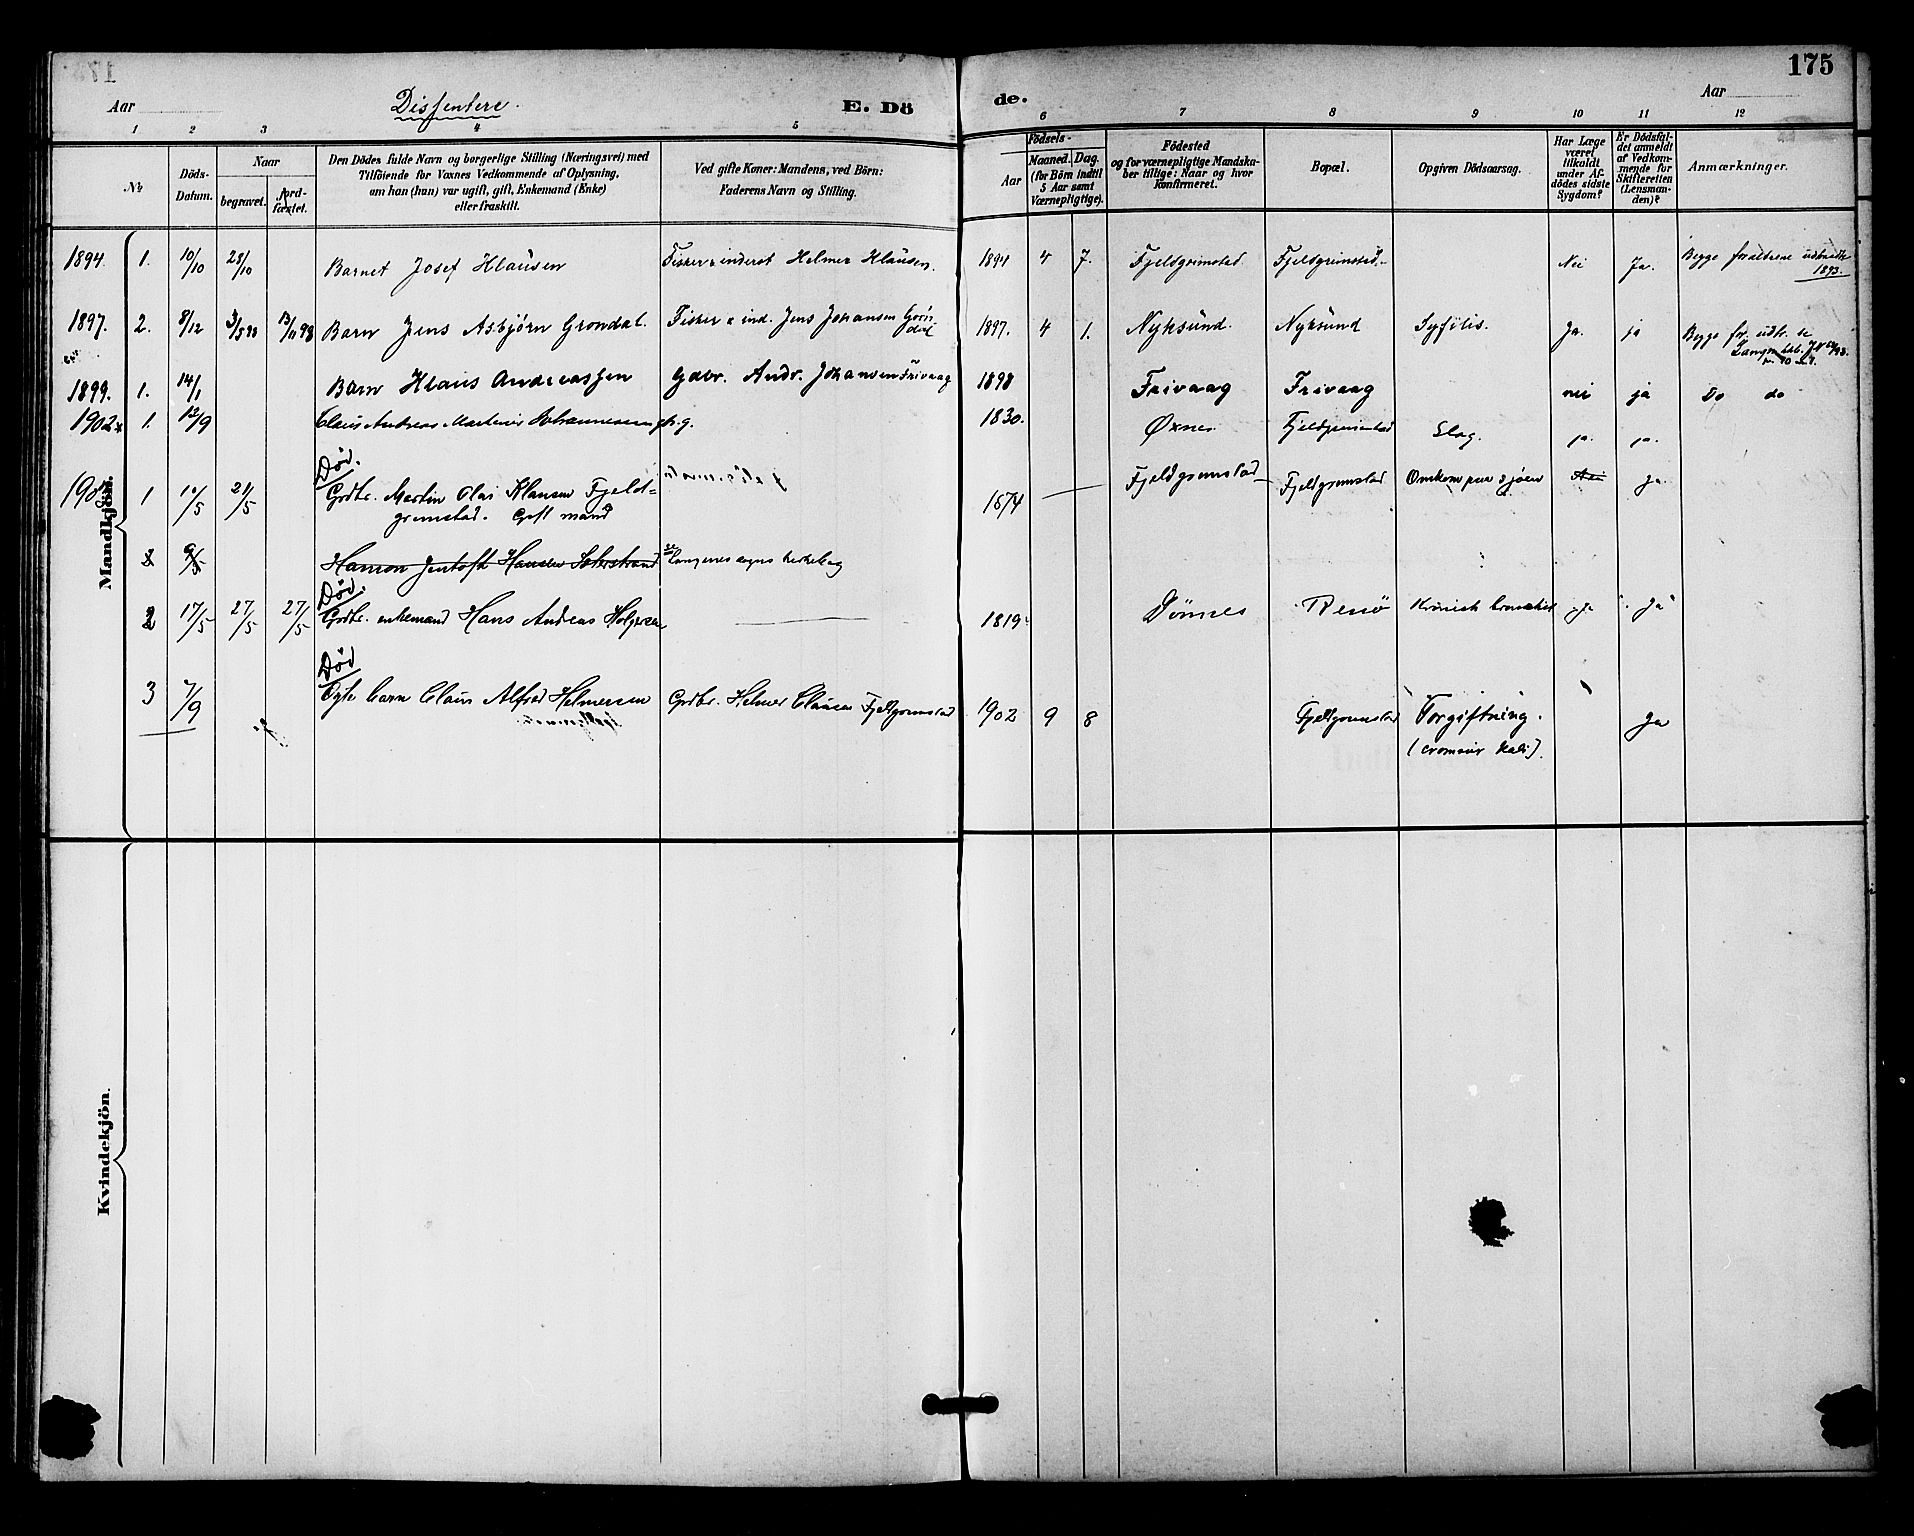 175
Aar
Dissentere.
E. Dö
de.
Aar
1 2 3 4 5 6 7 8 9 10 11 12
№
Döds-
Datum.
Naar
begravet.
Jord-
fæstet.
Den Dödes fulde Navn og borgerlige Stilling (Næringsvei) med
Tilföiende for Voxnes Vedkommende af Oplysning,
om han (hun) var ugift, gift, Enkemand (Enke)
eller fraskilt.
Ved gifte Koner: Mandens, ved Börn:
Faderens Navn og Stilling.
Födsels-
Aar
Maaned. Dag.
(for Börn indtil
5 Aar samt
Værnepligtige).
Födested
og for værnepligtige Mandska-
ber tillige: Naar og hvor
konfirmeret.
Bopæl.
Opgiven Dödsaarsag.
Har Læge
været
tilkaldt
under Af-
dödes sidste
Sygdom?
Er Dödsfal-
det anmeldt
af Vedkom-
mende for
Skifteretten
(Lensman-
den)?
Anmærkninger.
Mandkjön.
1894. 1. 10/10 28/10 Barnet Josef Klausen Fisker & inderst Helmer Klausen. 1894 4 7. Fjeldgrimstad. Fjeldgrimstad. Nei Ja. Begge forældrene udtraadt
1893.
1897. 2. 8/12 3/5 98 13/11 98 Barn Jens Asbjörn Grondal. Fisker & ind. Jens Johansen Grön
dal 1897. 4 1. Nyksund. Nyksund Syfilis. Ja. ja Begge for. udtr. se
1899. 1. 14/1 Barn Klaus Andreassen Gdbr. Andr. Johansen Frivaag 1898 Frivaag Frivaag nei ja Do do
1902 1. 12/9 Claus Andreas Martinus Johannesen 1830. Øxnes Fjeldgrimstad Slag. ja. ja.
Död.
1 10/5 21/5 Grdbr. Martin Olai Klausen Fjeld-
grimstad. Gift mand 1874 Fjeldgrimstad Fjeldgrimstad Omkom paa sjøen Nei Ja
2 9/5 Hanson Jentoft Hansen se Langenes sogns kirkebog
Död.
2 17/5 27/5 27/5 Grdbr. enkemand Hans Andreas Holgersen 1819. Dönnes Kronisk bronchit ja Ja
Död
3 7/9 Ægte barn Claus Alfred Helmersen Grdbr. Helmer Clausen Fjeldgrimstad 1902 9 8 Fjeldgrimstad Forgiftning. Ja
(cromsur kali).
Kvindekjön.